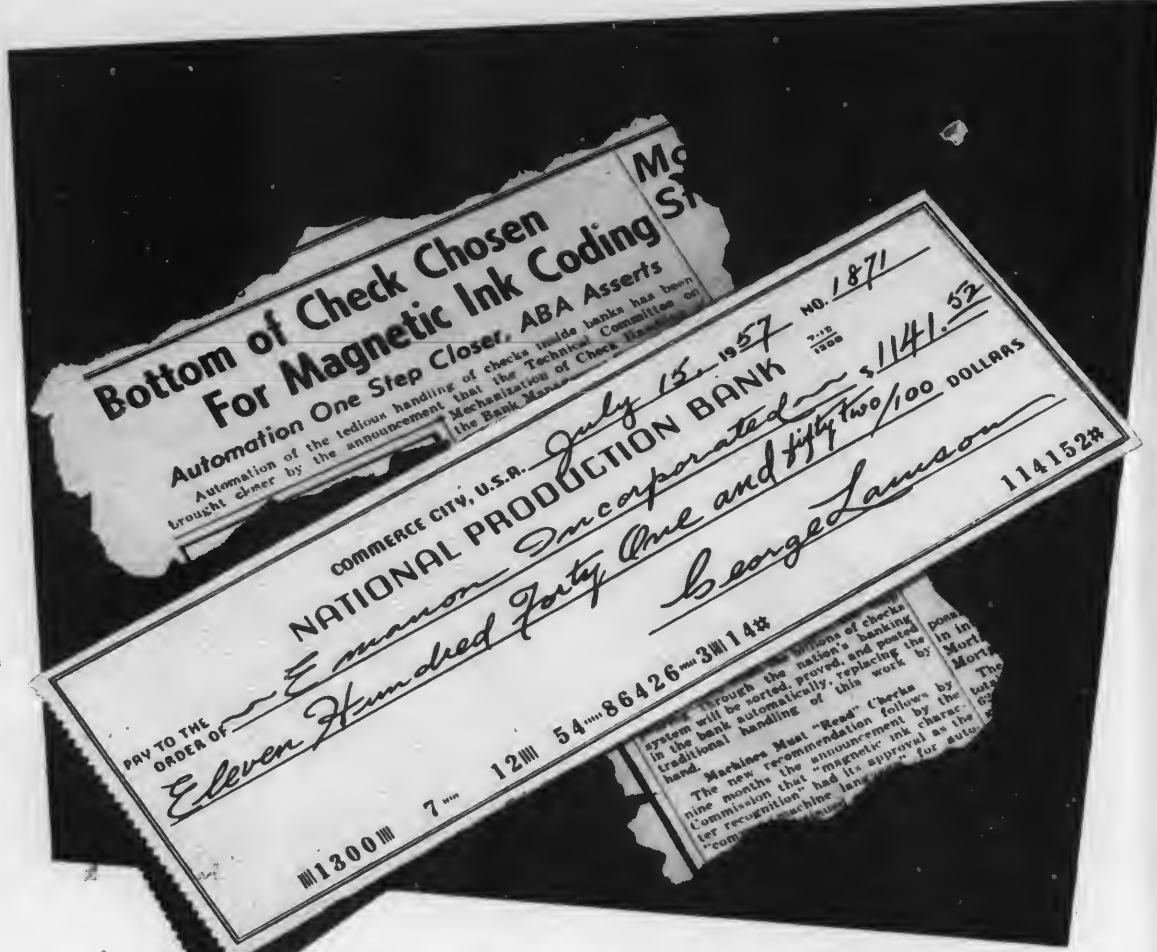 Bottom of Check Chosen
For Magnetic Ink Coding
Automation One Step Closer, ABA Asserts
Automation of the tedious handling of checks inside banks has been
brought closer by the announcement that the Technical Committee on
Mechanization of Check Handling
the Bank
COMMERCE CITY, U.S.A. July 15, 1957 NO. 1871
NATIONAL PRODUCTION BANK
PAY TO THE
ORDER OF Emanon Incorporated $ 1141.52
Eleven Hundred Forty One and fifty two/100 DOLLARS
George Lawson
1300 7 12 54 86426 3 14 114152
through the nation's banking
system will be sorted, proved, and posted
in the bank automatically, replacing the
traditional handling of this work by
hand.
Machines Must "Read" Checks
The new recommendation follows by
nine months the announcement by the
Commission that "magnetic ink charac-
ter recognition" had its approval as the